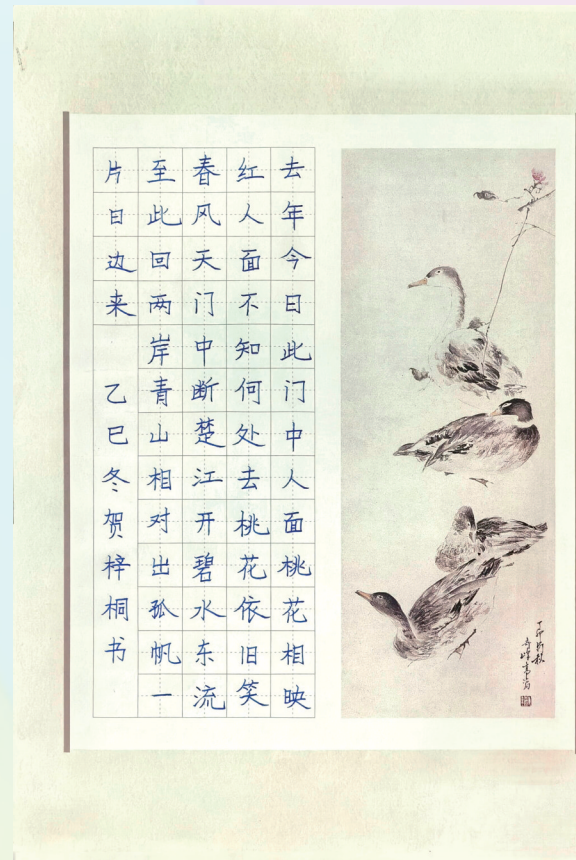 去年今日此门中人面桃花相映
红人面不知何处去桃花依旧笑
春风天门中断楚江开碧水东流
至此回两岸青山相对出孤帆一
片日边来
乙巳冬贺梓桐书